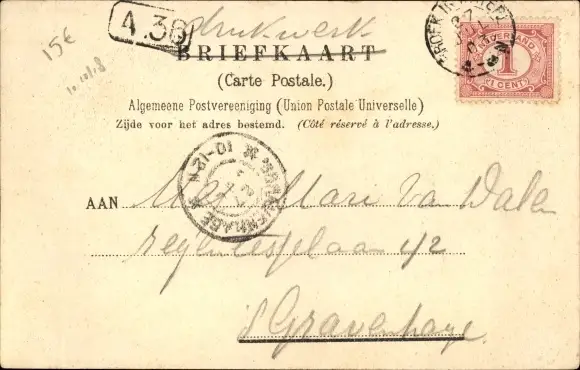 15€
10.10/18
A.38
drukwerk
BRIEFKAART
(Carte Postale.)
Algemeene Postvereeniging (Union Postale Universelle)
Zijde voor het adres bestemd. (Côté réservé à l'adresse.)
NEDERLAND
1
1 CENT
BROEK IN
'SGRAVENHAGE
10-12V
AAN Mej. Marie Van Dalen
Regentesselaan 42
's Gravenhage.